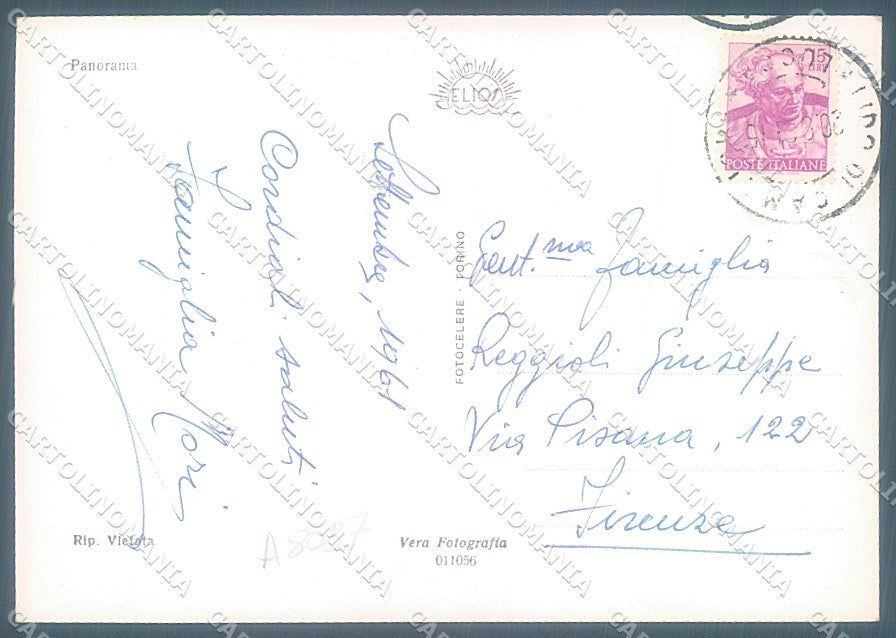 Panorama
ELIOS
Settembre, 1961
Cordiali saluti
Famiglia Mori
FOTOCELERE - TORINO
15
LIRE
POSTE ITALIANE
LIDO DI CAM
Gent.ma Famiglia
Reggioli Giuseppe
Via Pisana, 122
Firenze
Rip. Vietata
A 8087
Vera Fotografia
011056
CARTOLINOMANIA